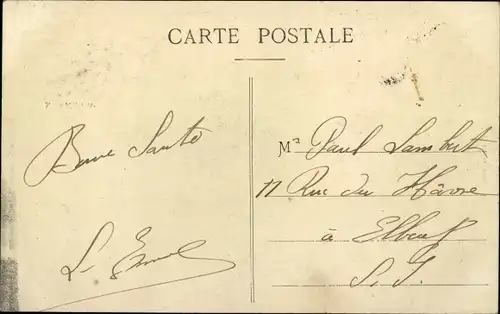 CARTE POSTALE
Bonne Santé
L. Emel
Mr Paul Lambert
11 Rue du Hâvre
à Elbeuf
S. I.